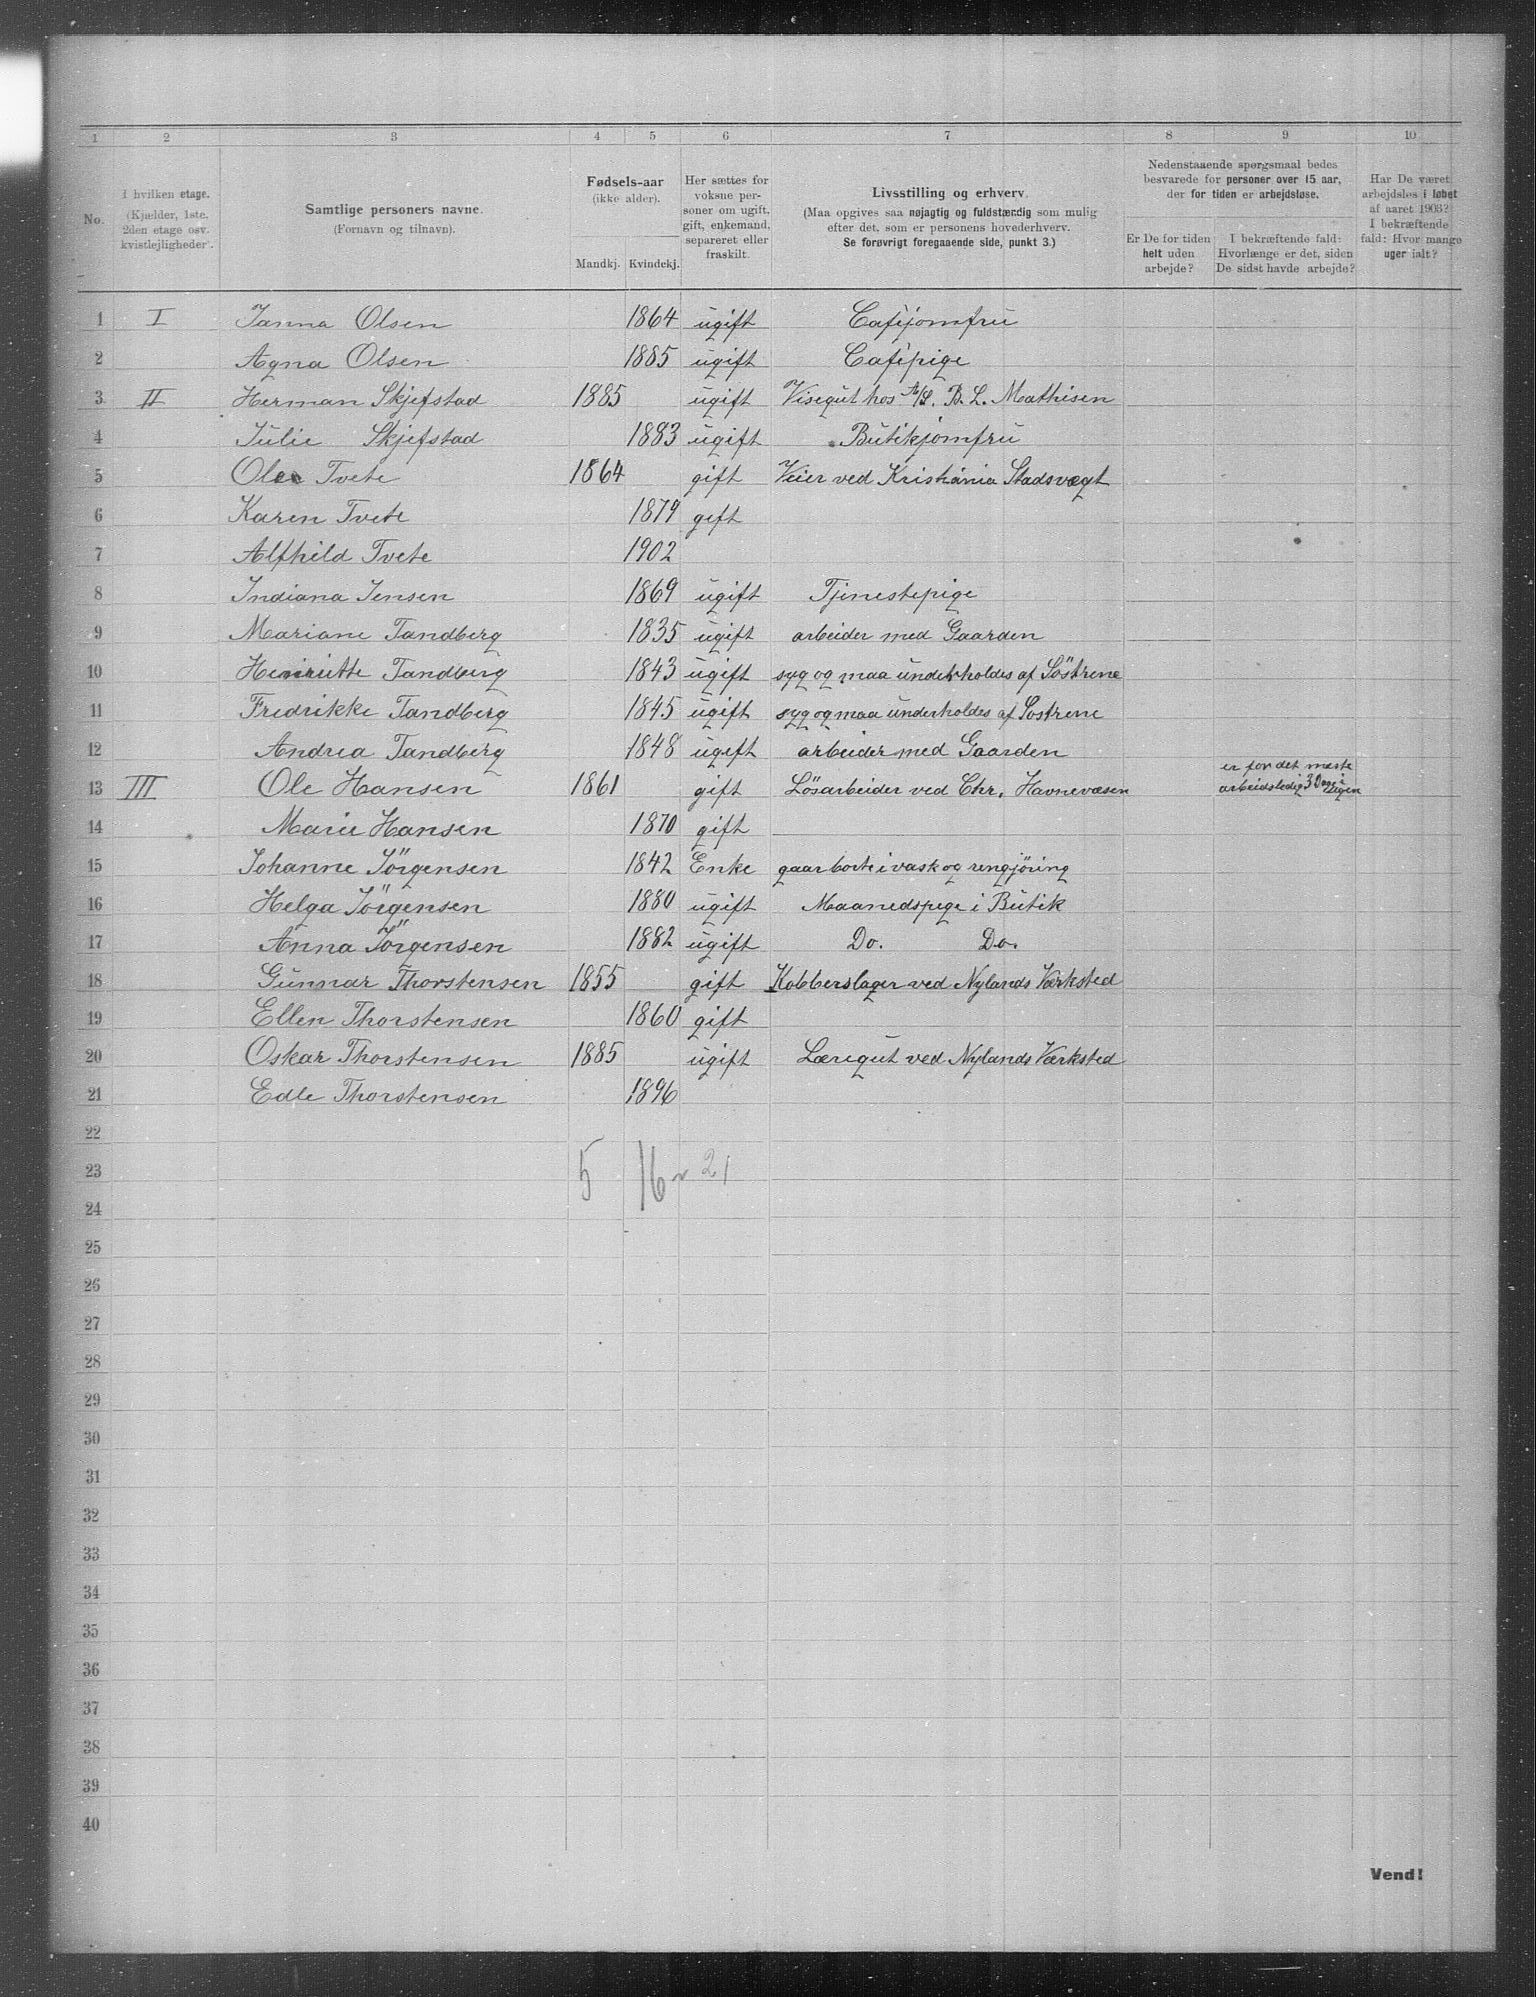 1 2 3 4 5 6 7 8 9 10
No.
I hvilken etage.
(Kjælder, 1ste.
2den etage osv.
kvistlejligheder).
Samtlige personers navne.
(Fornavn og tilnavn).
Fødsels-aar
(ikke alder).
Mandkj. Kvindekj.
Her sættes for
voksne per-
soner om ugift,
gift, enkemand,
separeret eller
fraskilt.
Livsstilling og erhverv.
(Maa opgives saa nøjagtig og fuldstændig som mulig
efter det, som er personens hovederhverv.
Se forøvrigt foregaaende side, punkt 3.)
Nedenstaaende spørgsmaal bedes
besvarede for personer over 15 aar,
der for tiden er arbejdsløse.
Er De for tiden
helt uden
arbejde?
I bekræftende fald:
Hvorlænge er det, siden
De sidst havde arbejde?
Har De været
arbejdsløs i løbet
af aaret 1903?
I bekræftende
fald: Hvor mange
uger ialt?
1 I Janna Olsen 1864 ugift Caféjomfru
2 Agna Olsen 1885 ugift Cafépige
3 II Herman Skjefstad 1885 ugift Visegut hos A/S. B. L. Mathisen
4 Julie Skjefstad 1883 ugift Butikjomfru
5 Ole Tvete 1864 gift Veier ved Kristiania Stadsvægt
6 Karen Tvete 1879 gift
7 Alfhild Tvete 1902
8 Indiana Jensen 1869 ugift Tjenestepige
9 Mariane Tandberg 1835 ugift arbeider med Gaarden
10 Henriette Tandberg 1843 ugift syg og maa underholdes af Söstrene
11 Fredrikke Tandberg 1845 ugift syg og maa underholdes af Sostrene
12 Andrea Tandberg 1848 ugift arbeider med Gaarden
13 III Ole Hansen 1861 gift Lösarbeider ved Chr. Havnevæsen er for det meste
arbeidsledig 3 Dage i Ugen
14 Marie Hansen 1870 gift
15 Johanne Jörgensen 1842 Enke gaar borte i vask og rengjöring
16 Helga Jörgensen 1880 ugift Maanedspige i Butik
17 Anna Jörgensen 1882 ugift Do. Do.
18 Gunnar Thorstensen 1855 gift Kobberslager ved Nylands Værksted
19 Ellen Thorstensen 1860 gift
20 Oskar Thorstensen 1885 ugift Læregut ved Nylands Værksted
21 Edle Thorstensen 1896
22
23 5 16 21
24
25
26
27
28
29
30
31
32
33
34
35
36
37
38
39
40
Vend!